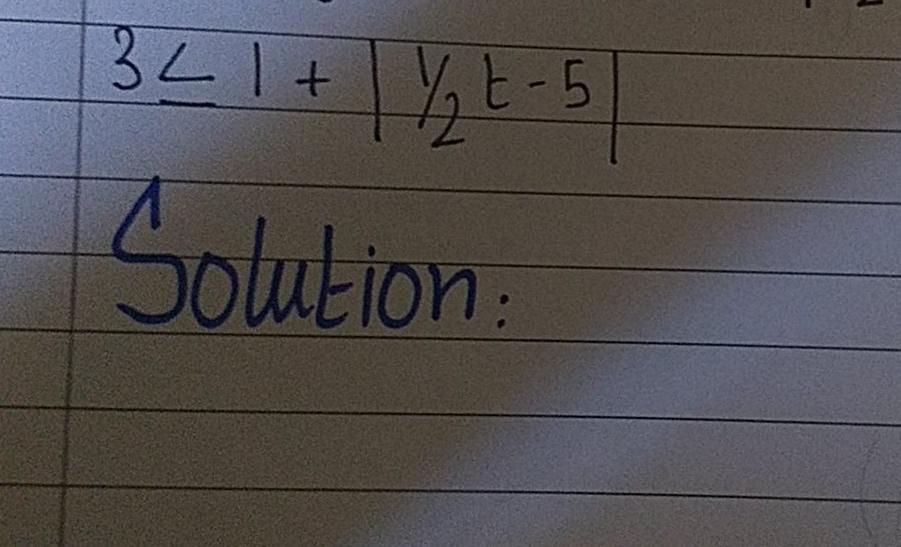 3 ≤ 1 + | 1/2 t - 5 |
Solution: